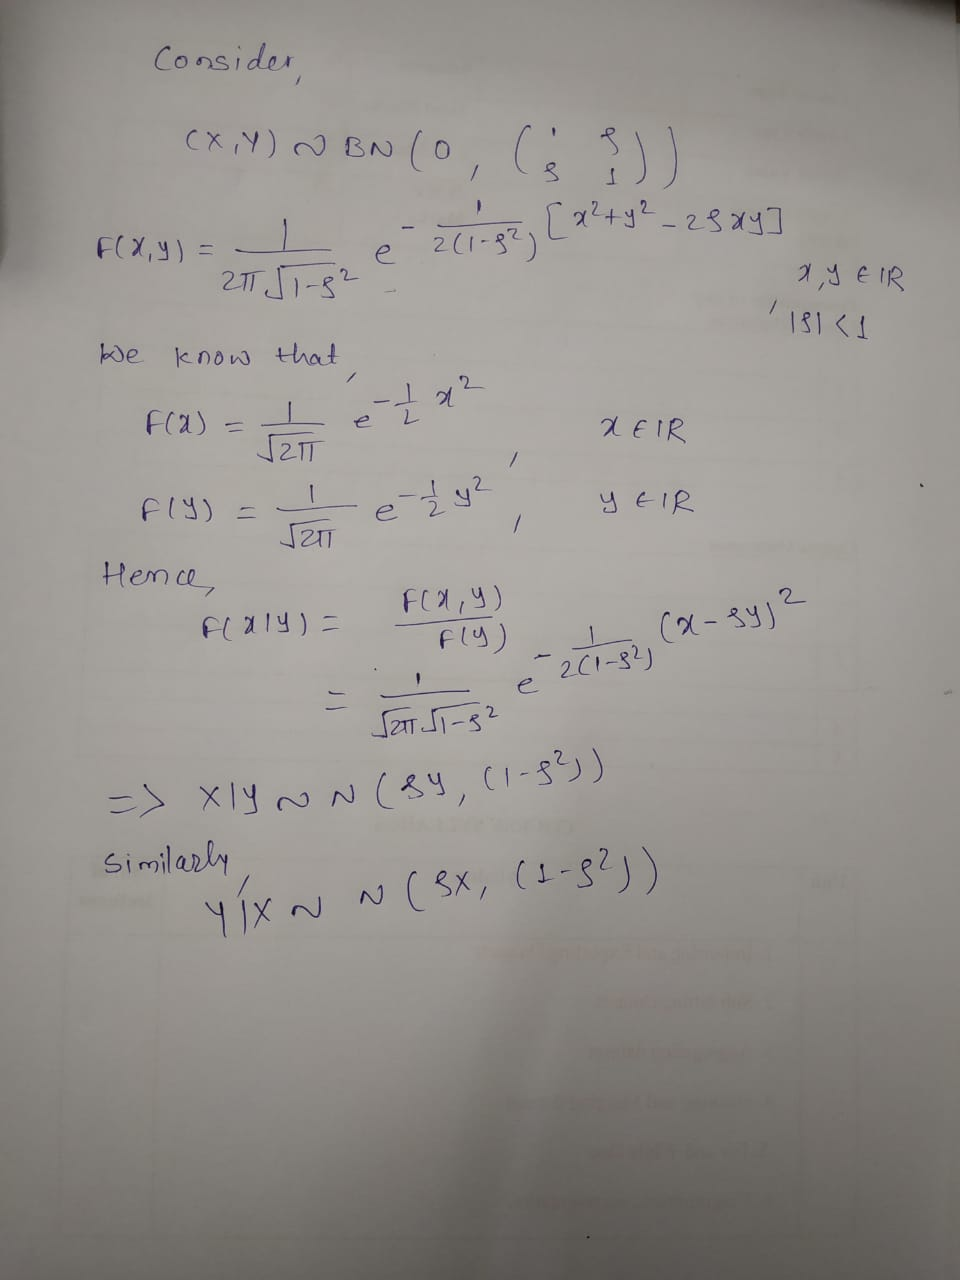 Consider,
(X,Y) ~ BN (0, (1 ρ
ρ 1))
F(x,y) = 1/(2π√(1-ρ²)) e^(-1/(2(1-ρ²)) [x²+y²-2ρxy]
x,y ∈ IR
, |ρ| < 1
We know that,
F(x) = 1/√(2π) e^(-1/2 x²), x ∈ IR
F(y) = 1/√(2π) e^(-1/2 y²), y ∈ IR
Hence,
F(x|y) = F(x,y)/F(y)
= 1/(√(2π)√(1-ρ²)) e^(-1/(2(1-ρ²)) (x-ρy)²
=> X|y ~ N (ρy, (1-ρ²))
Similarly,
Y|X ~ N (ρX, (1-ρ²))